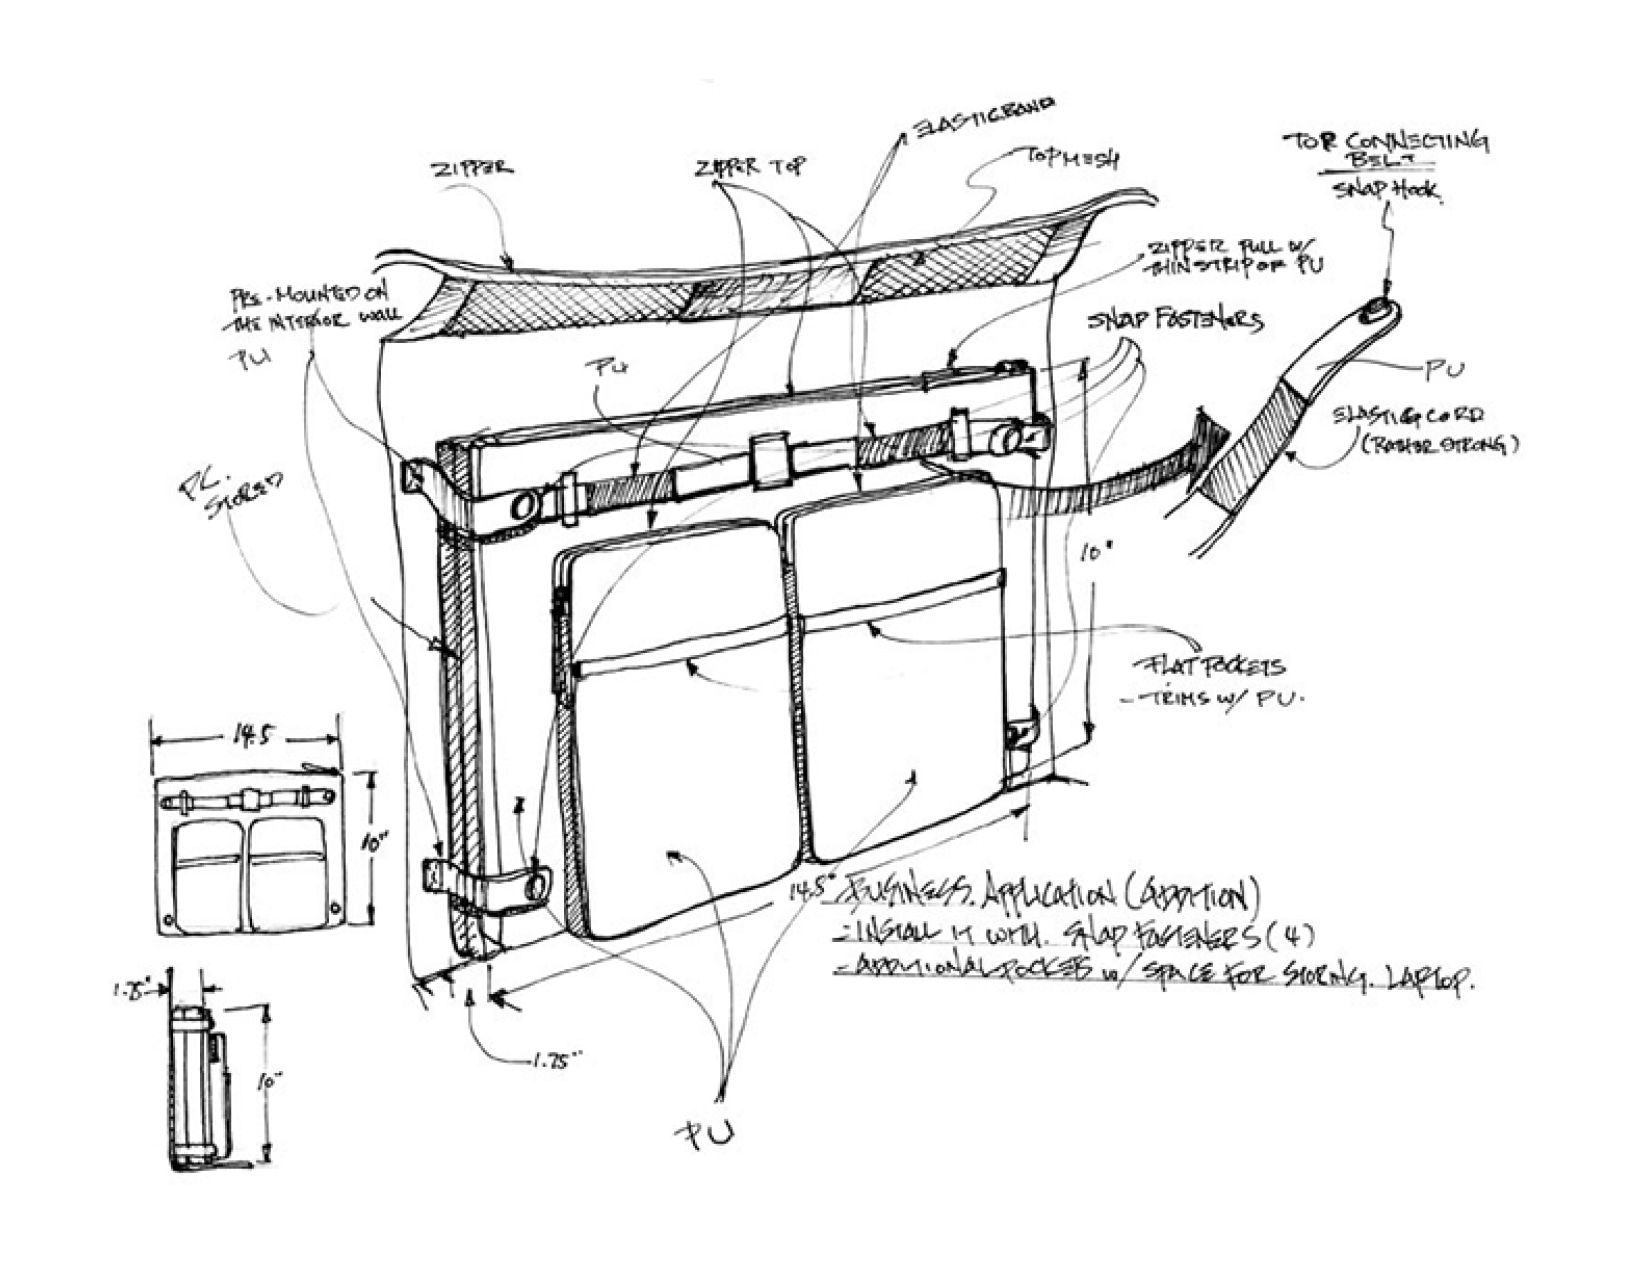 ELASTIC BAND
ZIPPER
ZIPPER TOP
TOP MESH
TOP CONNECTING
BELT
SNAP HOOK
ZIPPER PULL W/
THIN STRIP OF PU
PRE-MOUNTED ON
THE INTERIOR WALL
PU
SNAP FASTENERS
PU
PU
ELASTIC CORD
(RATHER STRONG)
PC.
STORED
10"
FLAT POCKETS
- TRIMS W/ PU.
14.5
10"
14.5"
BUSINESS. APPLICATION (ADDITION)
- INSTALL IT WITH. SNAP FASTENERS (4)
- ADDITIONAL POCKETS W/ SPACE FOR STORING. LAPTOP.
1.75"
1.75"
10"
PU